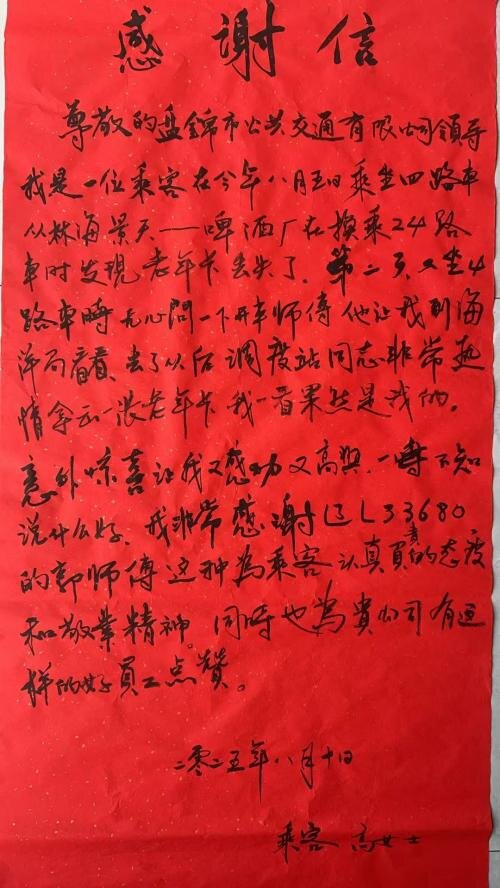 感谢信
尊敬的盘錦市公共交通有限公司領导
我是一位乘客在今年八月五日乘坐四路車
从林海景天——啤酒厂在换乘24路
車时发現老年卡丢失了。第二天又坐4
路車時无心問一下开车师傅他让我到海
洋局看看、去了以后调度站同志非常热
情拿出一张老年卡我一看果然是我的。
意外惊喜让我又感动又高興,一時不知
说什么好。我非常感謝辽L33680
的郭师傅这种為乘客认真負責的态度
和敬業精神。同時也為貴公司有这
样的好員工点赞。
二零二五年八月十日
乘客 高女士